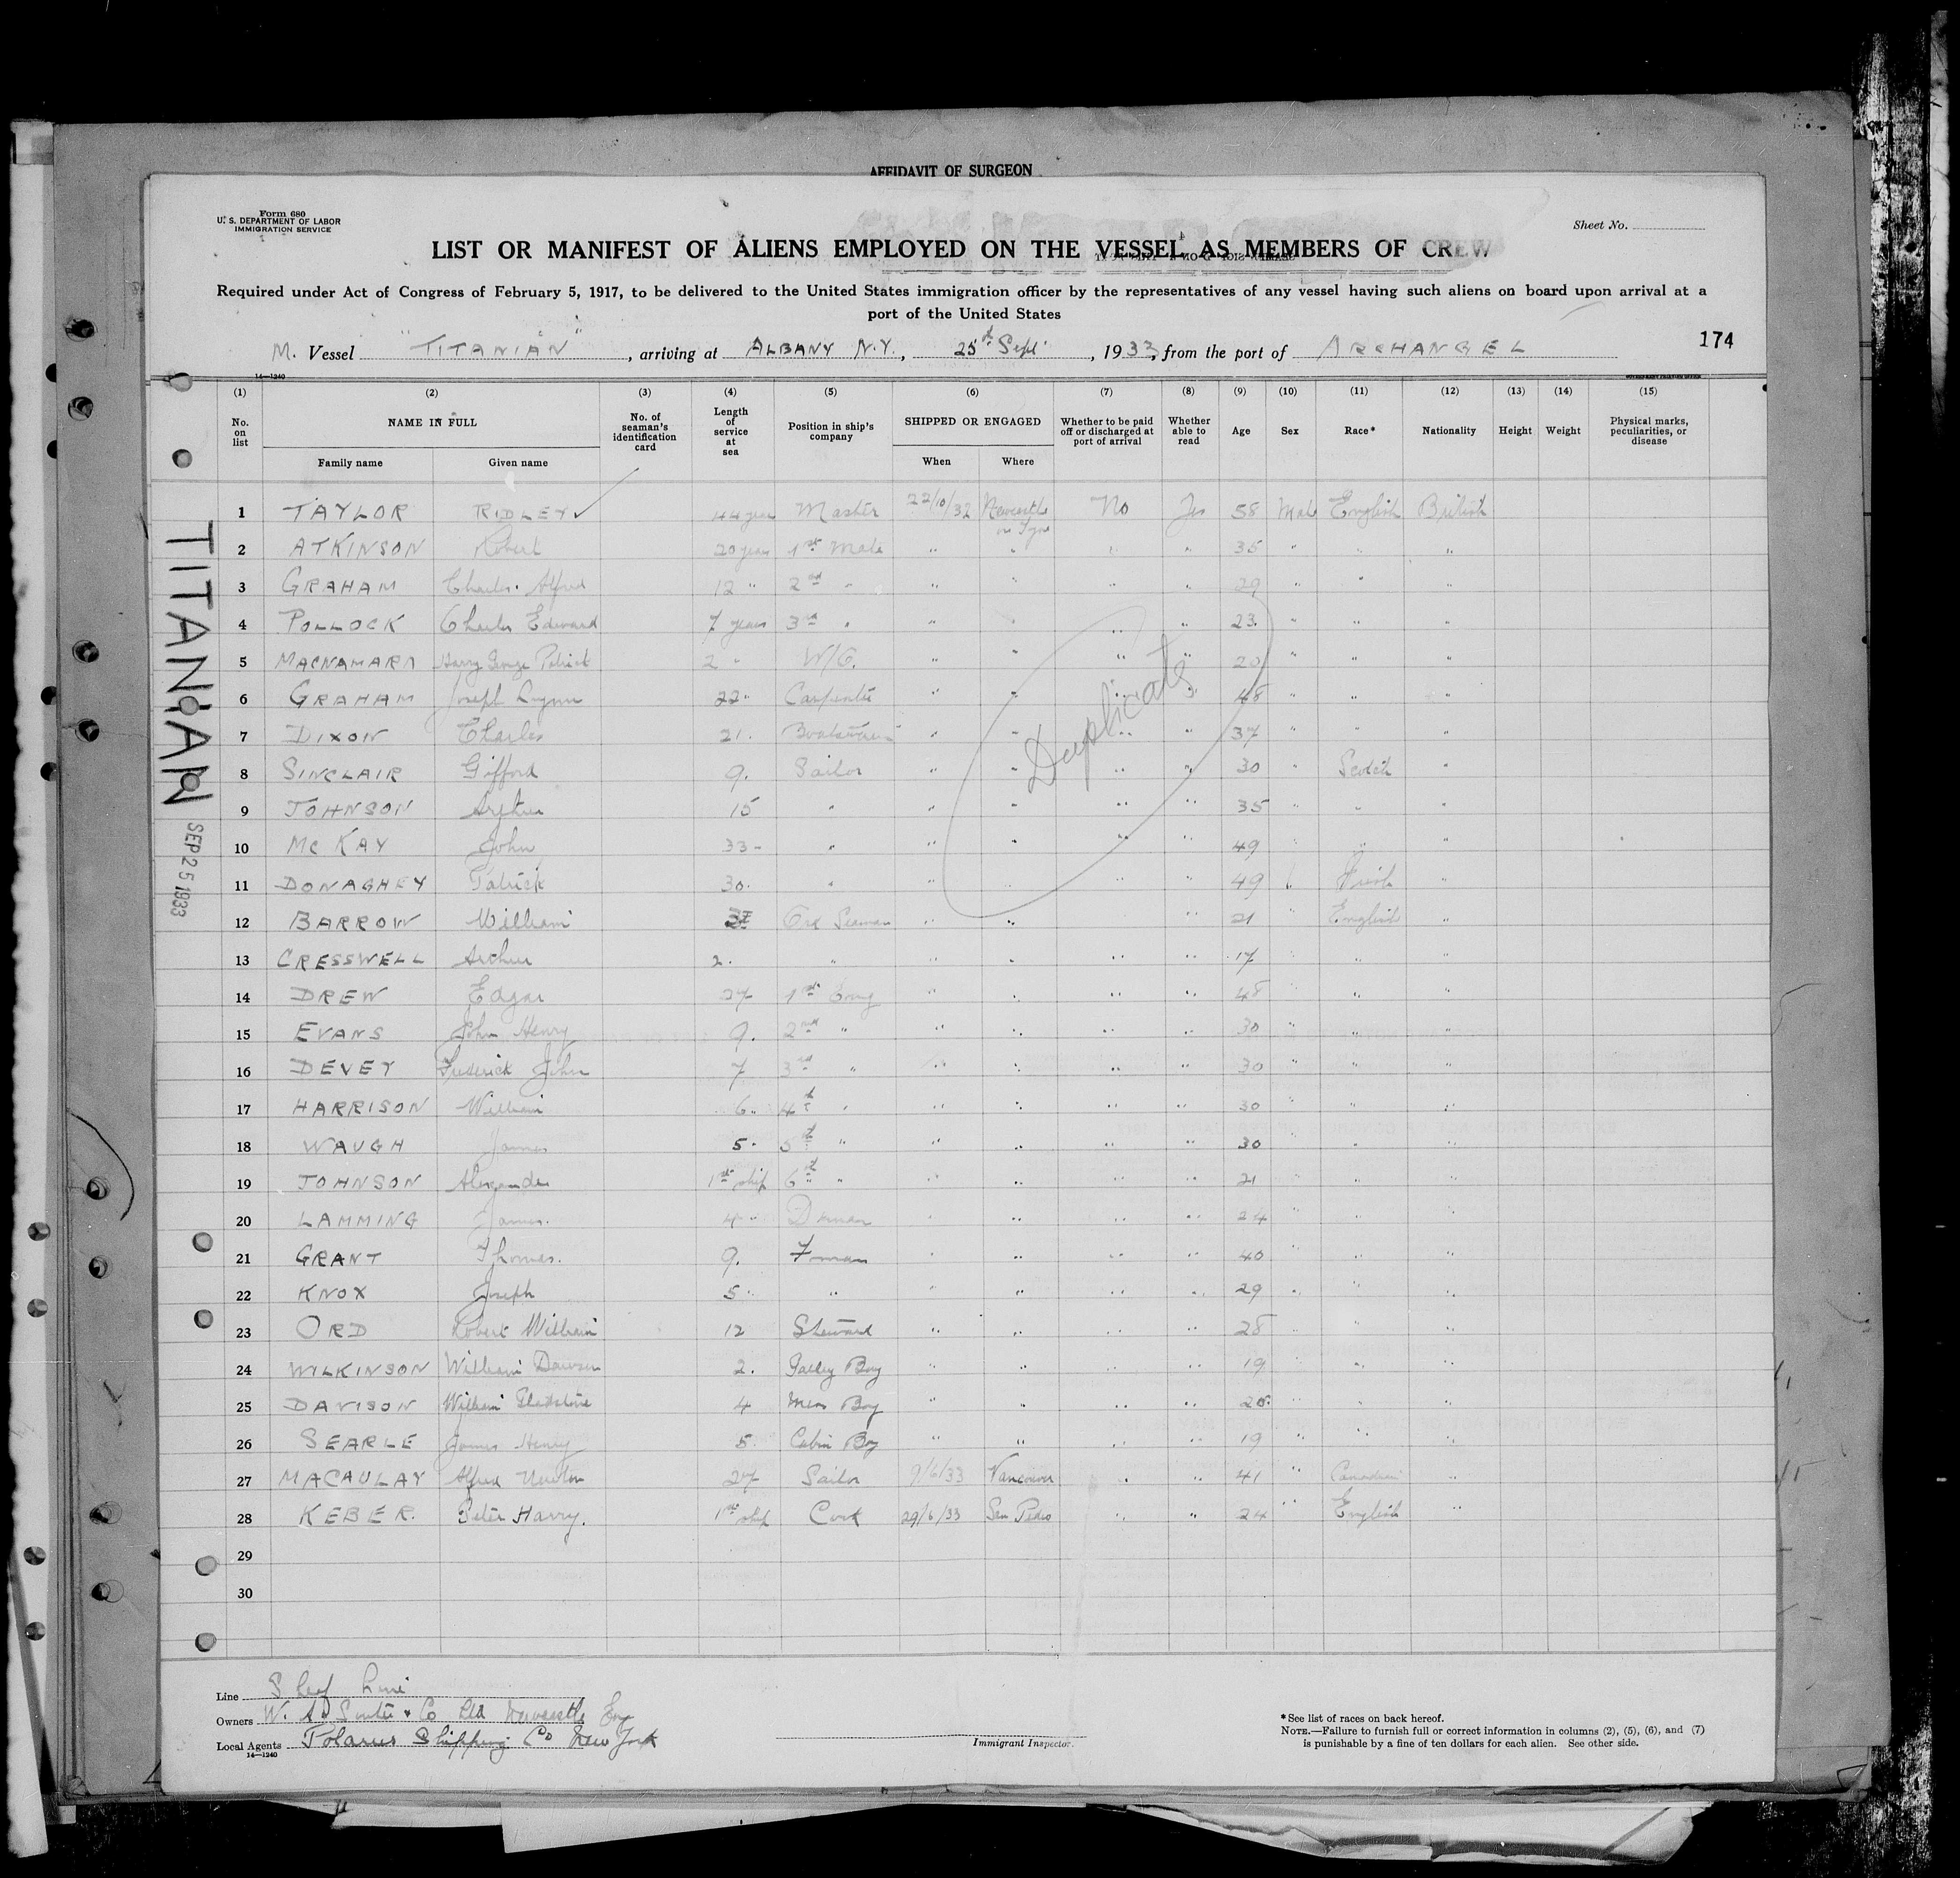 AFFIDAVIT OF SURGEON
Form 680
U. S. DEPARTMENT OF LABOR
IMMIGRATION SERVICE
Sheet No.
LIST OR MANIFEST OF ALIENS EMPLOYED ON THE VESSEL AS MEMBERS OF CREW
Required under Act of Congress of February 5, 1917, to be delivered to the United States immigration officer by the representatives of any vessel having such aliens on board upon arrival at a
port of the United States
M. Vessel "TITANIAN", arriving at ALBANY N.Y., 25th Sept, 1933, from the port of ARCHANGEL
174
14—1240
(1) (2) (3) (4) (5) (6) (7) (8) (9) (10) (11) (12) (13) (14) (15)
No. on list NAME IN FULL No. of seaman's identification card Length of service at sea Position in ship's company SHIPPED OR ENGAGED Whether to be paid off or discharged at port of arrival Whether able to read Age Sex Race* Nationality Height Weight Physical marks, peculiarities, or disease
Family name Given name When Where
1 TAYLOR RIDLEY 44 years Master 22/10/32 Newcastle on Tyne No Yes 58 Male English British
2 ATKINSON Robert 20 years 1st Mate " " " " 35 " " "
3 GRAHAM Charles Alfred 12 " 2nd " " " " " 29 " " "
4 POLLOCK Charles Edward 7 years 3rd " " " " " 23 " " "
5 MACNAMARA Harry George Patrick 2 " W/O. " " " " 20 " " "
6 GRAHAM Joseph 22 " Carpenter " " " " 48 " " "
7 DIXON Charles 21 Boatswain " " " " 37 " " "
8 SINCLAIR Gifford 9. Sailor " " " " 30 " Scotch "
9 JOHNSON Arthur 15 " " " " " 35 " " "
10 MCKAY John 33 " " " " " 49 " " "
11 DONAGHEY Patrick 30. " " " " " 49 " Irish "
12 BARROW William Ord Seaman " " " 21 " English "
13 CRESSWELL Arthur 2. " " " " " 17 " " "
14 DREW Edgar 27 1st Eng " " " " 48 " " "
15 EVANS John Henry 9. 2nd " " " " " 30 " " "
16 DEVEY Frederick John 7 3rd " " " " " 30 " " "
17 HARRISON William 6 4th " " " " " 30 " " "
18 WAUGH James 5. 5th " " " " " 30 " " "
19 JOHNSON Alexander 1st ship 6th " " " " " 21 " " "
20 LAMMING James. 4 " Dman " " " " 24 " " "
21 GRANT Thomas. 9. Fman " " " " 40 " " "
22 KNOX Joseph 5 " " " " " 29 " " "
23 ORD Robert William 12 Steward " " " " 28 " " "
24 WILKINSON William Dawson 2. Galley Boy " " " " 19 " " "
25 DAVISON William Gladstone 4 Mess Boy " " " " 20 " " "
26 SEARLE James Henry 5 Cabin Boy " " " " 19 " " "
27 MACAULAY Alfred Newton 27 Sailor 9/6/33 Vancouver " " 41 " Canadian "
28 KEBER. Peter Harry. 1st ship Cook 29/6/33 San Pedro " " 24 " English "
29
30
Duplicate
TITANIAN
SEP 25 1933
Line Sheaf Line
Owners W. A. Souter & Co Ltd Newcastle Eng
Local Agents Polarus Shipping Co New York
14—1240
Immigrant Inspector.
*See list of races on back hereof.
NOTE.—Failure to furnish full or correct information in columns (2), (5), (6), and (7)
is punishable by a fine of ten dollars for each alien. See other side.